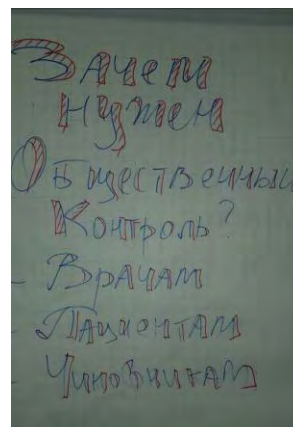 Зачем
нужен
Общественный
Контроль?
- Врачам
- Пациентам
- Чиновникам